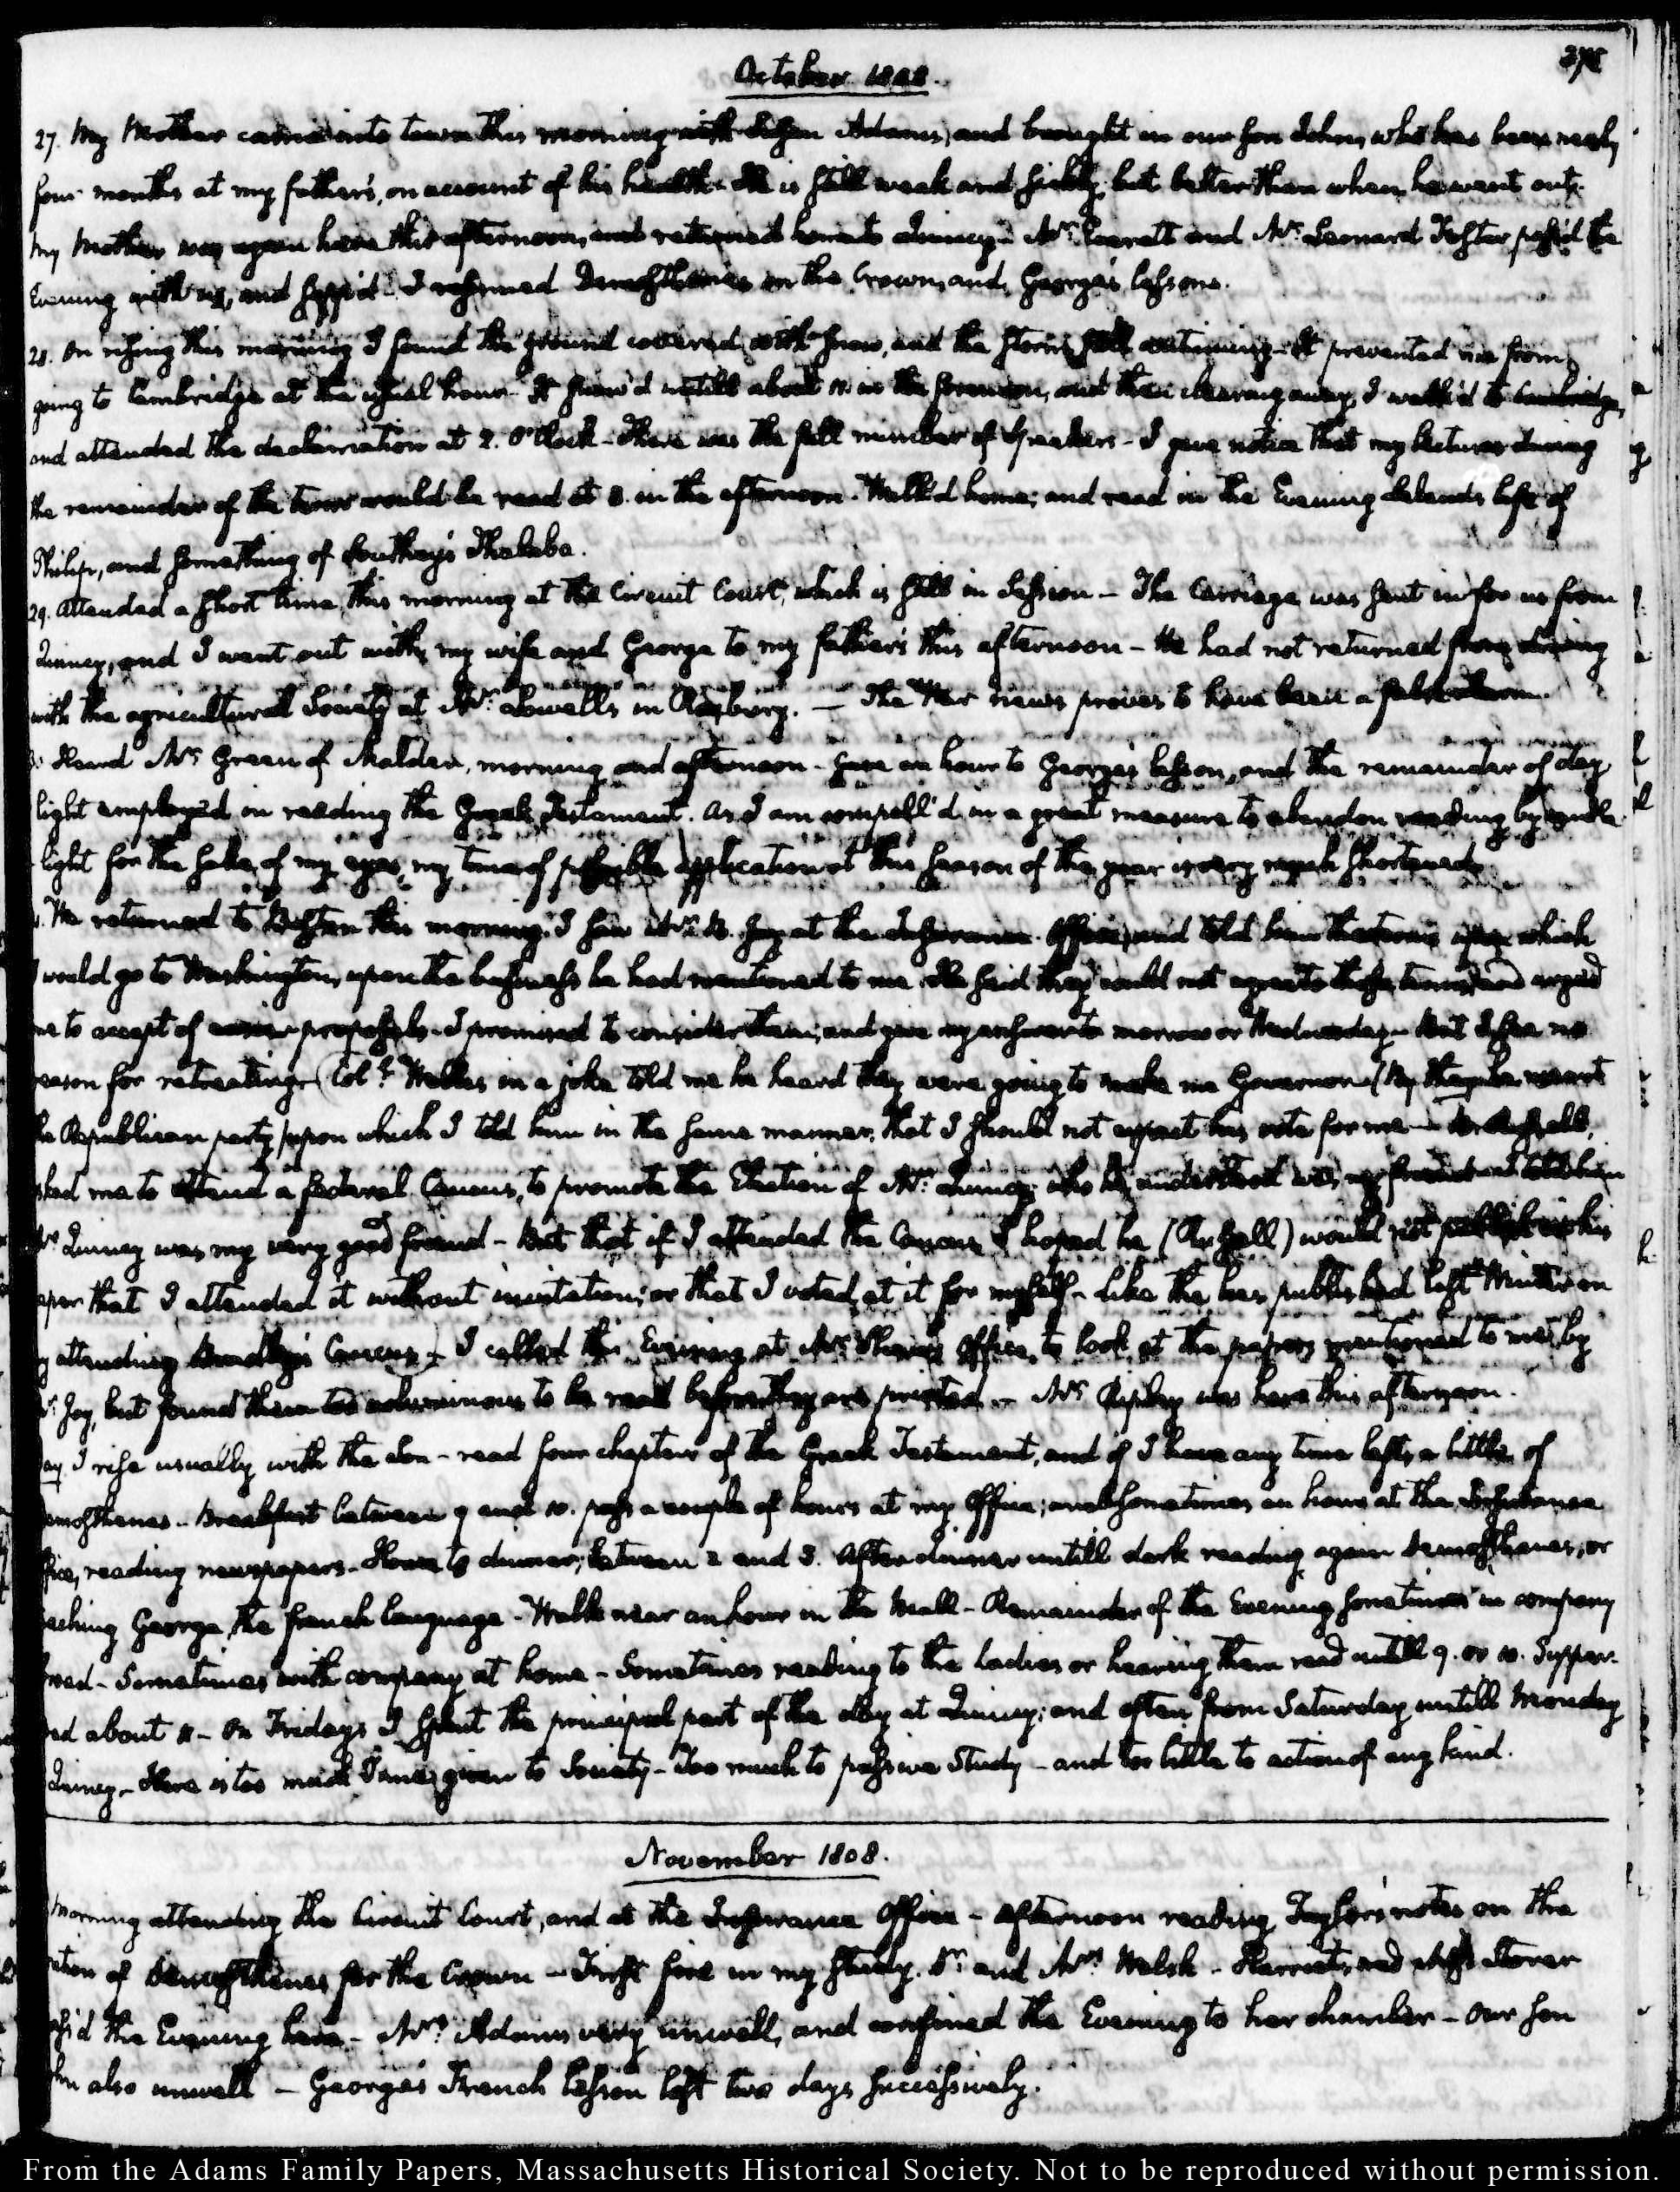 October 1808.
27. My Mother came into town this morning with Susan Adams, and brought in our Son John, who has been nearly
four months at my father's, on account of his health. He is still weak and sickly; but better than when he went out.
My Mother was again here this afternoon, and returned home to Quincy. Mr. Everett and Mr. Leonard Foster pass'd the
Evening with us, and supp'd. I resumed Demosthenes on the Crown, and George's lessons.
28. On rising this morning I found the ground covered with snow, and the storm still continuing. It prevented me from
going to Cambridge at the usual hour. It snow'd untill about 11. in the forenoon, and then clearing away, I walk'd to Cambridge,
and attended the declamation at 2. O'Clock. There was the full number of Speakers - I gave notice that my lectures during
the remainder of the term would be read at in the afternoon. Walk'd home; and read in the Evening Leland's life of
Philip, and something of Southey's Thalaba.
29. Attended a short time this morning at the Circuit Court, which is still in Session - The Carriage was sent in for us from
Quincy, and I went out with my wife and George to my father's this afternoon - He had not returned from dining
with the agricultural Society at Mr. Lowell's in Roxbury. - The War news proves to have been a false alarm.
Heard Mr. Green of Malden, morning and afternoon - Gave an hour to George's lesson, and the remainder of day
light employed in reading the Greek Testament. As I am compell'd in a great measure to abandon reading by candle
light for the sake of my eyes, my time of possible application at this season of the year is very much shortened.
We returned to Boston this morning. I saw Mr. B. Joy at the Insurance Office, and told him the terms upon which
I would go to Washington, upon the business he had mentioned to me. He said they could not agree to those terms, and urged
me to accept of proposals. I promised to consider them, and give my answer to morrow or Wednesday. But I see no
reason for retreating. Coll. Welles in a joke told me he heard they were going to make me Governor (By they he meant
the Republican party) upon which I told him in the same manner, that I should not expect his vote for me - Mr. Russell,
asked me to attend a federal Caucus, to promote the Election of Mr. Quincy; who he understood was my friend - I told him
Mr. Quincy was my very good friend - But that if I attended the Caucus I hoped he (Russell) would not publish in his
paper that I attended it without invitation; or that I voted at it for myself - Like the lies published last Winter on
my attending Bradley's Caucus - I called this Evening at Mr. Office, to look at the papers mentioned to me by
Mr. Joy, but found them too voluminous to be read before they are printed - Mr. Ripley was here this afternoon.
Day. I rise usually with the Sun - read four chapters of the Greek Testament, and if I have any time left, a little of
Demosthenes - Breakfast between 9 and 10. pass a couple of hours at my Office; and sometimes an hour at the Insurance
Office, reading newspapers. Home to dinner, between 2 and 3. After dinner untill dark reading again Demosthenes, or
teaching George the french language - Walk near an hour in the Mall - Remainder of the Evening sometimes in company
abroad - Sometimes with company at home - Sometimes reading to the Ladies or hearing them read untill 9. or 10. Supper.
Bed about 11 - On Fridays I spent the principal part of the day at Quincy; and often from Saturday untill Monday
Quincy - There is too much Time given to Society - Too much to passive Study - and too little to action of any kind.
November 1808.
Morning attending the Circuit Court, and at the Insurance Office - afternoon reading Taylor's notes on the
oration of Demosthenes for the Crown - First fire in my study. Dr. and Mrs. Welsh - Harriet, and Miss Storer
pass'd the Evening here - Mrs. Adams very unwell, and confined the Evening to her chamber - Our Son
John also unwell - George's French lesson lost two days successively.
From the Adams Family Papers, Massachusetts Historical Society. Not to be reproduced without permission.